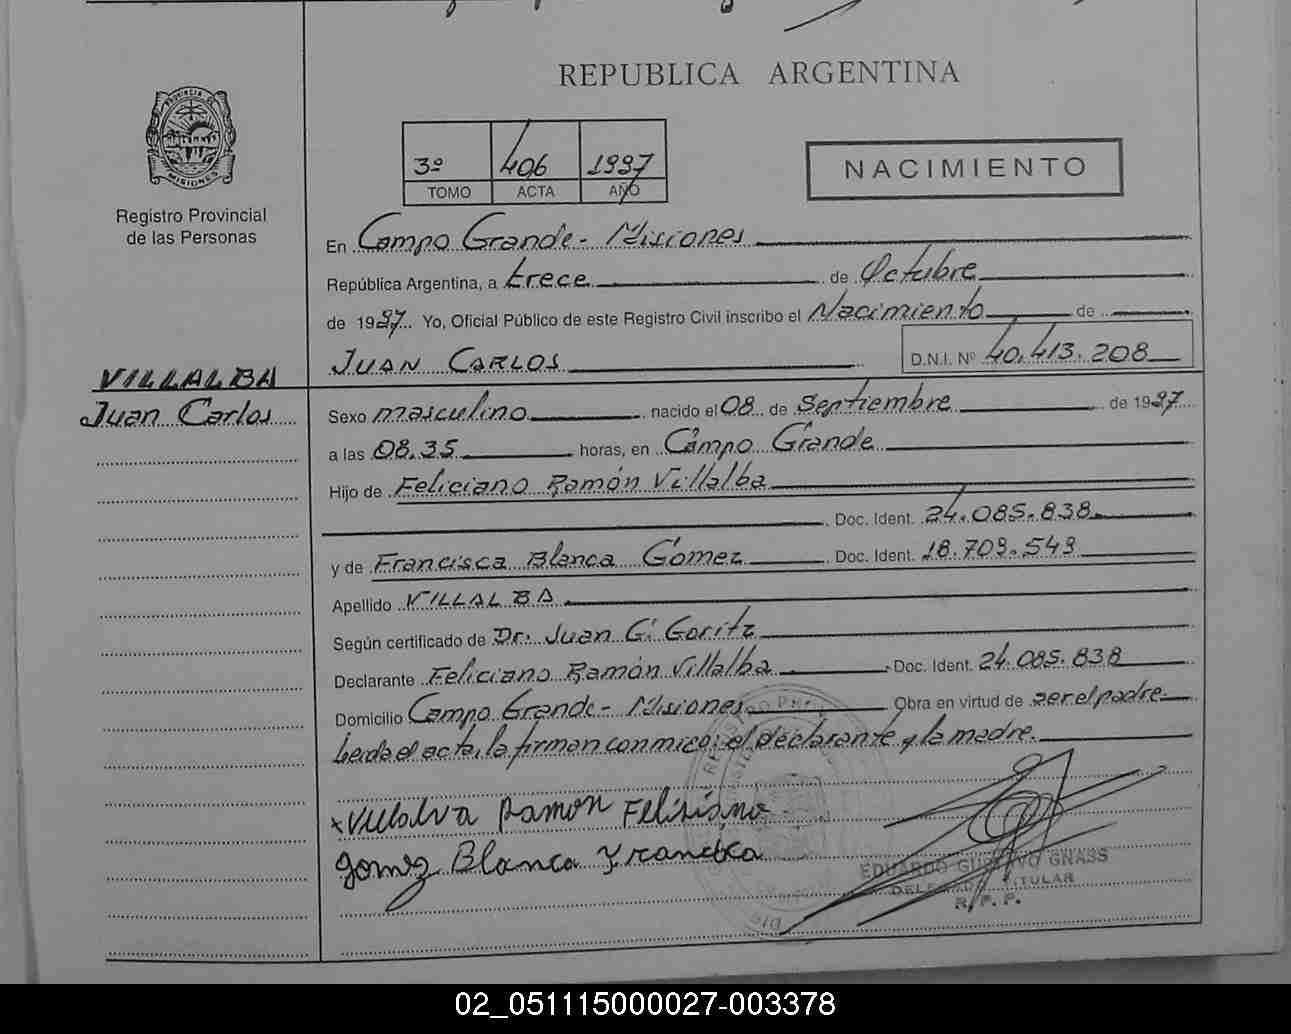 REPUBLICA ARGENTINA
PROVINCIA DE
MISIONES
Registro Provincial
de las Personas
3º 406 1997
TOMO ACTA AÑO
NACIMIENTO
En Campo Grande - Misiones
República Argentina, a trece de Octubre
de 1997 Yo, Oficial Público de este Registro Civil inscribo el Nacimiento de
JUAN CARLOS D.N.I. Nº 40.413.208
VILLALBA
Juan Carlos
Sexo masculino nacido el 08 de Septiembre de 1997
a las 08.35 horas, en Campo Grande
Hijo de Feliciano Ramón Villalba
Doc. Ident. 24.085.838
y de Francisca Blanca Gómez Doc. Ident. 18.709.549
Apellido VILLALBA
Según certificado de Dr. Juan G. Goritz
Declarante Feliciano Ramón Villalba Doc. Ident. 24.085.838
Domicilio Campo Grande - Misiones Obra en virtud de ser el padre
leida el acta, la firman conmigo: el declarante y la madre.
x Villalva Ramon Felisiano
gomez Blanca Francisca
EDUARDO GUSTAVO GNASS
DELEGADO TITULAR
R. P. P.
02_051115000027-003378